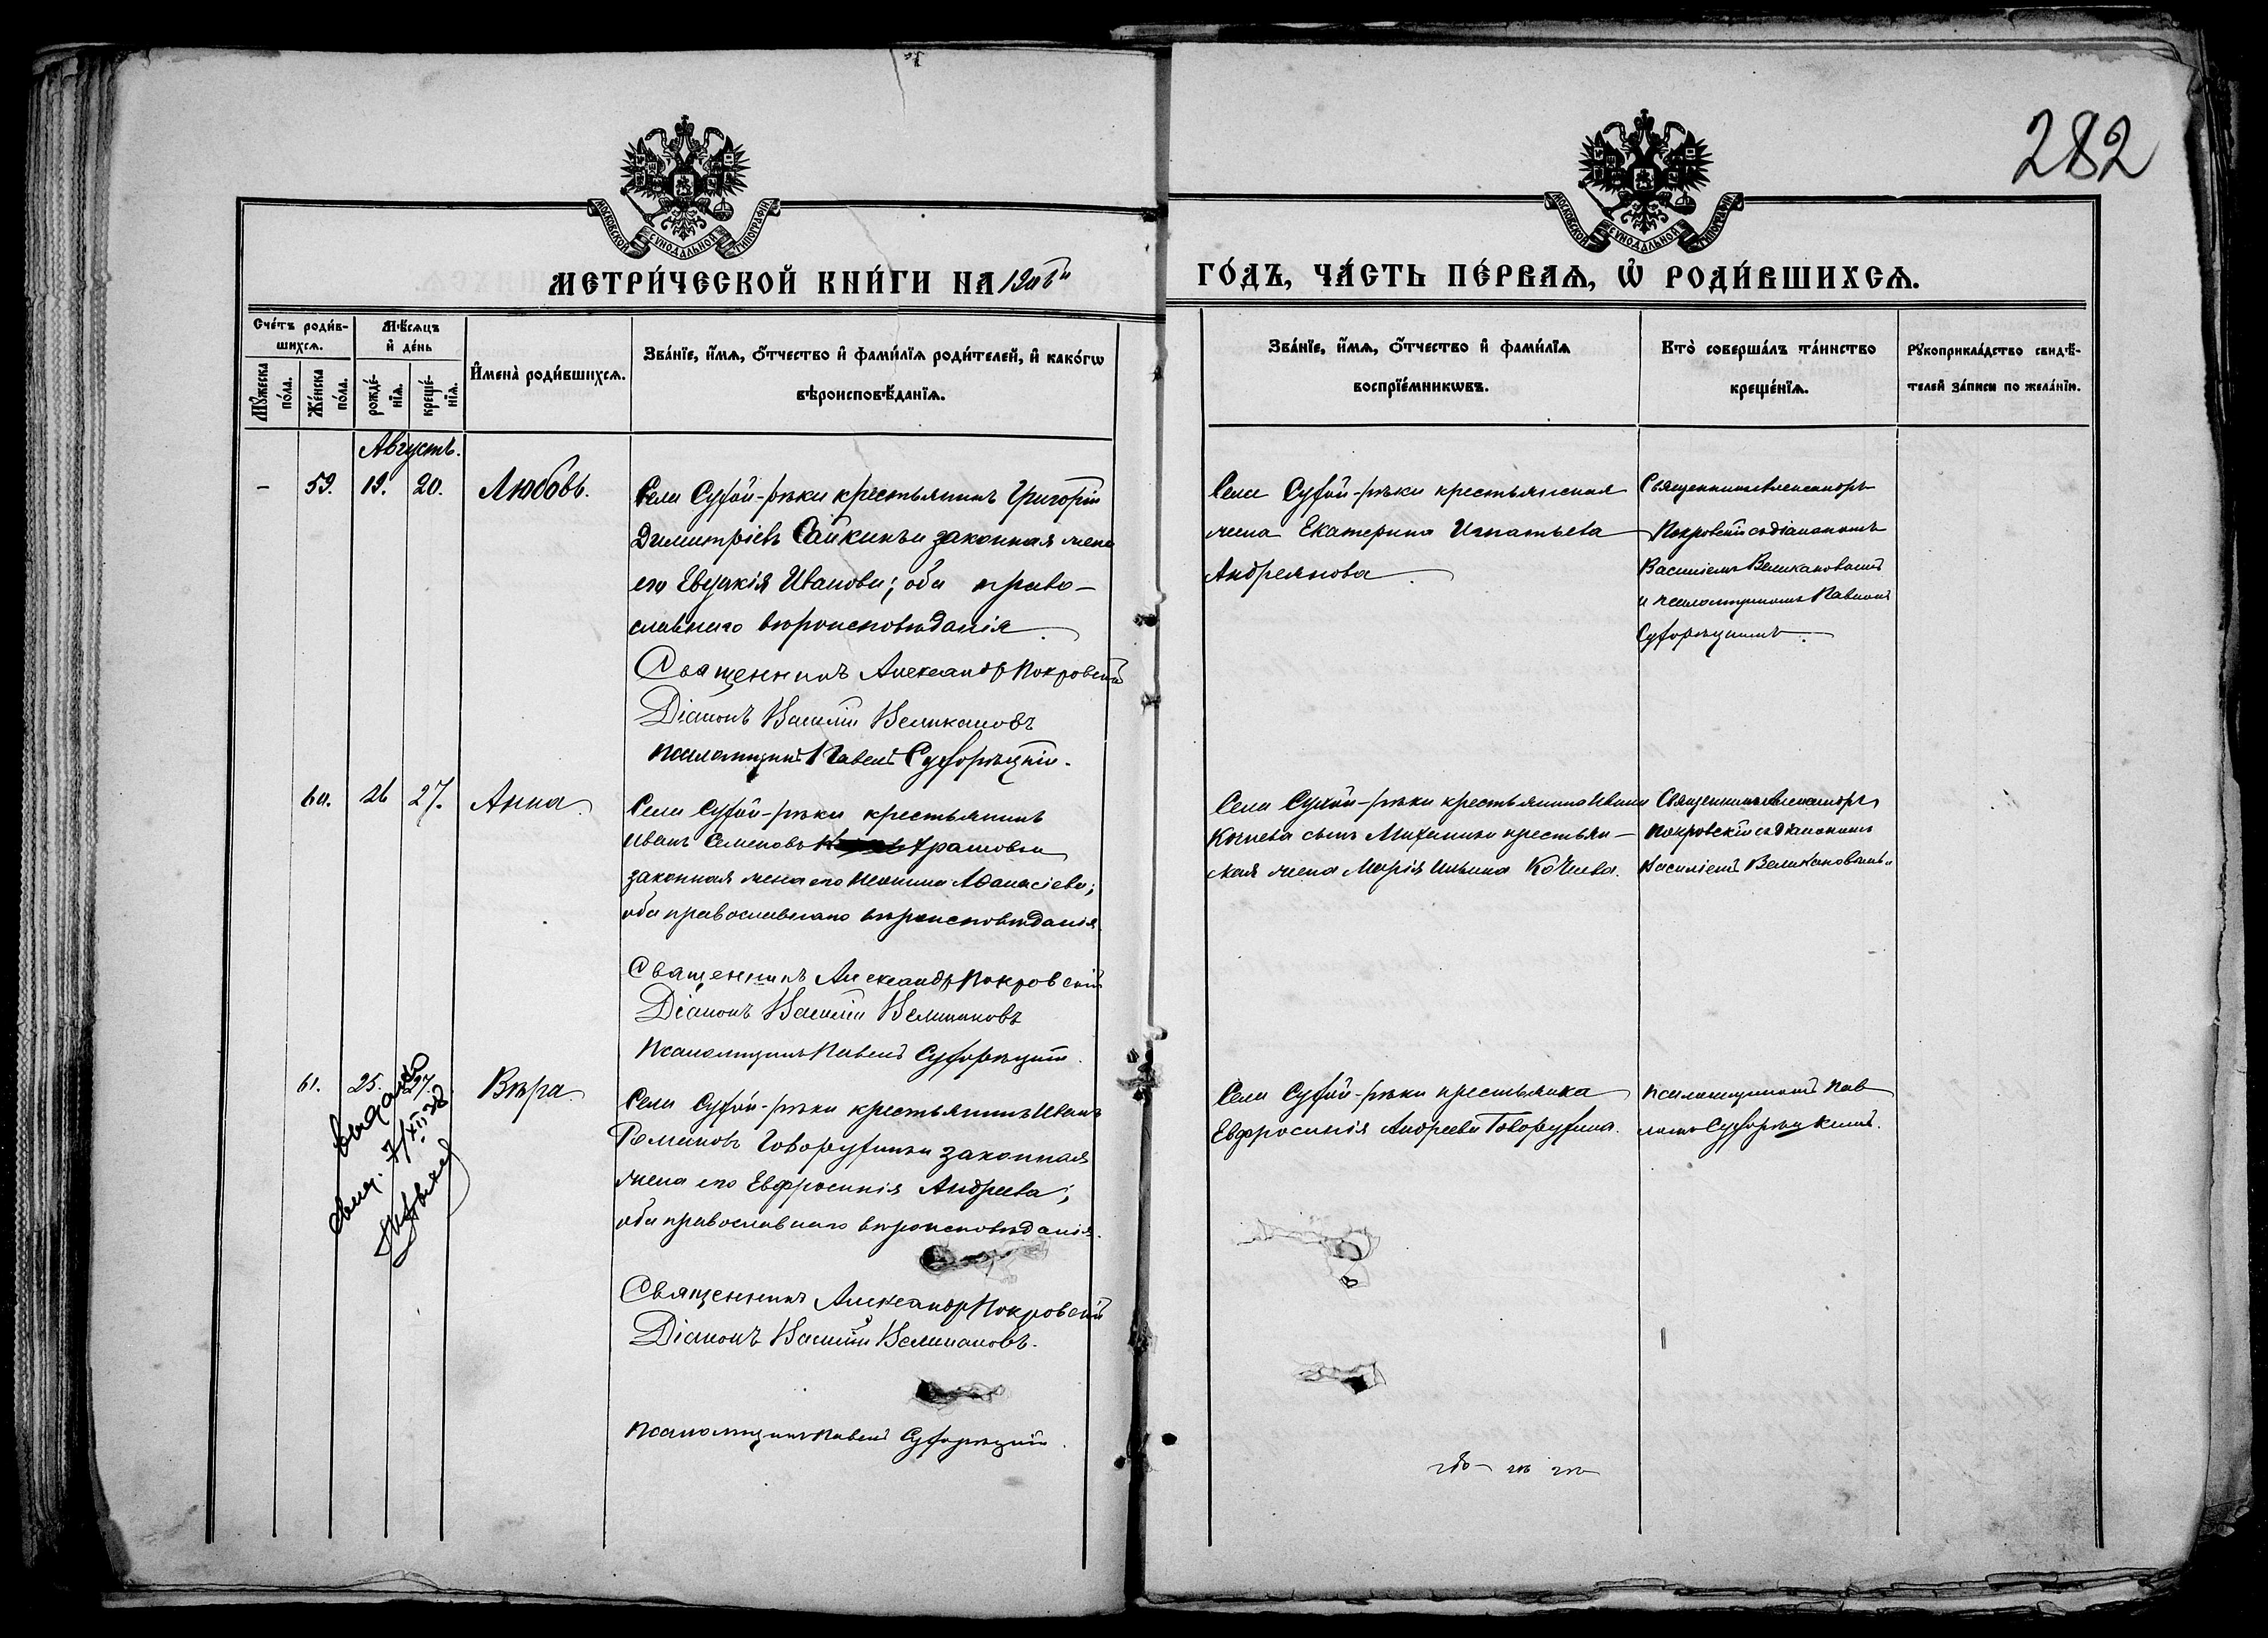 282
МОСКОВСКОЙ СѴНОДАЛЬНОЙ ТИПОГРАФІИ
МОСКОВСКОЙ СѴНОДАЛЬНОЙ ТИПОГРАФІИ
МЕТРИ́ЧЕСКОЙ КНИ́ГИ НА
ГО́ДЪ, ЧА́СТЬ ПЕ́РВАѦ, Ѡ҆ РОДИ́ВШИХСѦ.
Сче́тъ роди́в-
шихсѧ.
Мꙋ́жеска по́ла.
Же́нска по́ла.
Мѣ́сѧцъ
и҆ де́нь
рожде́-нїѧ.
креще́-нїѧ.
И҆мена̀ роди́вшихсѧ.
Зва́нїе, и҆́мѧ, ѻ҆́тчество и҆ фами́лїѧ роди́телей, и҆ како́гѡ
вѣроисповѣ́данїѧ.
Зва́нїе, и҆́мѧ, ѻ҆́тчество и҆ фами́лїѧ
воспрїе́мникѡвъ.
Кто̀ соверша́лъ та́инство
креще́нїѧ.
Рꙋкоприкла́дство свидѣ́-
телей за́писи по жела́нїю.
Августъ.
- 59. 19. 20. Любовь.
Села Сухой-рѣки крестьянинъ Григорій
Димитріевъ Сайкинъ и законная жена
его Евдокія Иванова; оба право-
славнаго вѣроисповѣданія.
Священникъ Александръ Покровскій
Діаконъ Василій Великановъ
Псаломщикъ Павелъ Сухорѣцкій.
Села Сухой-рѣки крестьянская
жена Екатерина Игнатьева
Андреянова.
Священникъ Александръ
Покровскій съ діакономъ
Василіемъ Великановымъ
и псаломщикомъ Павломъ
Сухорѣцкимъ.
60. 26 27. Анна.
Села Сухой-рѣки крестьянинъ
Иванъ Семеновъ
законная жена его Аѳанасіева;
оба православнаго вѣроисповѣданія.
Священникъ Александръ Покровскій
Діаконъ Василій Великановъ
Псаломщикъ Павелъ Сухорѣцкій.
Села Сухой-рѣки крестьянина Ивана
Кочнева сынъ Михаилъ и крестьян-
ская жена Марія Ильина Кочнева.
Священникъ Александръ
Покровскій съ діакономъ
Василіемъ Великановымъ.
61. 25. 27. Вѣра.
выдано
7/XII-38
Села Сухой-рѣки крестьянинъ Иванъ
Романовъ Говорухинъ и законная
жена его Евфросинія Андреева;
оба православнаго вѣроисповѣданія.
Священникъ Александръ Покровскій
Діаконъ Василій Великановъ.
Псаломщикъ Павелъ Сухорѣцкій.
Села Сухой-рѣки крестьянка
Евфросинія Андреева Говорухина.
Псаломщикомъ Пав-
ломъ Сухорѣцкимъ.